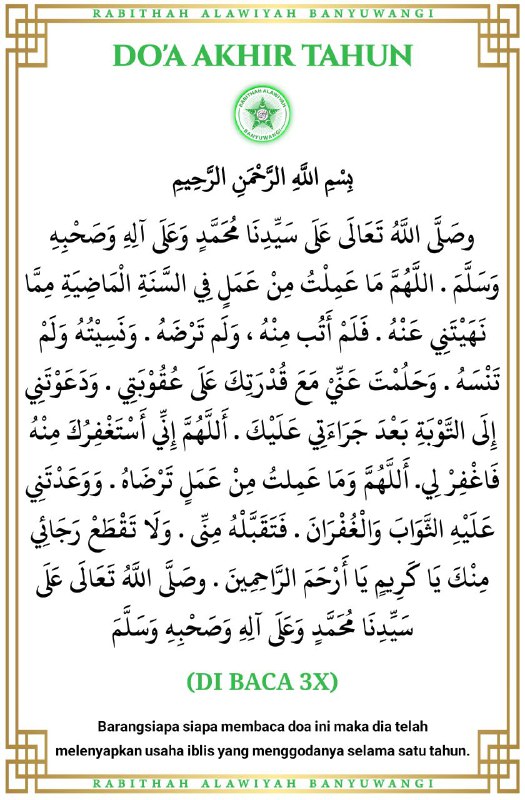 RABITHAH ALAWIYAH BANYUWANGI
DO'A AKHIR TAHUN
RABITHAH ALAWIYAH
BANYUWANGI
بِسْمِ اللَّهِ الرَّحْمَنِ الرَّحِيمِ
وصَلَّى اللَّهُ تَعَالَى عَلَى سَيِّدِنَا مُحَمَّدٍ وَعَلَى آلِهِ وَصَحْبِهِ
وَسَلَّمَ . اللَّهُمَّ مَا عَمِلْتُ مِنْ عَمَلٍ فِي السَّنَةِ الْمَاضِيَةِ مِمَّا
نَهَيْتَنِي عَنْهُ . فَلَمْ أَتُب مِنْهُ ، وَلَم تَرْضَهُ . وَنَسِيْتُهُ وَلَمْ
تَنْسَهُ . وَحَلُمْتَ عَنِّيْ مَعَ قُدْرَتِكَ عَلَى عُقُوْبَتِي . وَدَعَوْتَنِي
إِلَى التَّوْبَةِ بَعْدَ جَرَاءَتِي عَلَيْكَ . أَللَّهُمَّ إِنِّي أَسْتَغْفِرُكَ مِنْهُ
فَاغْفِرْ لِي. أَللَّهُمَّ وَمَا عَمِلتُ مِنْ عَمَلٍ تَرْضَاهُ . وَوَعَدْتَنِي
عَلَيْهِ الثَّوَابَ وَالْغُفْرَانَ . فَتَقَبَّلْهُ مِنِّى . وَلَا تَقْطَعْ رَجَائِي
مِنْكَ يَا كَرِيمٍ يَا أَرْحَمَ الرَّاحِمِينَ . وصَلَّى اللَّهُ تَعَالَى عَلَى
سَيِّدِنَا مُحَمَّدٍ وَعَلَى آلِهِ وَصَحْبِهِ وَسَلَّمَ
(DI BACA 3X)
Barangsiapa siapa membaca doa ini maka dia telah
melenyapkan usaha iblis yang menggodanya selama satu tahun.
RABITHAH ALAWIYAH BANYUWANGI